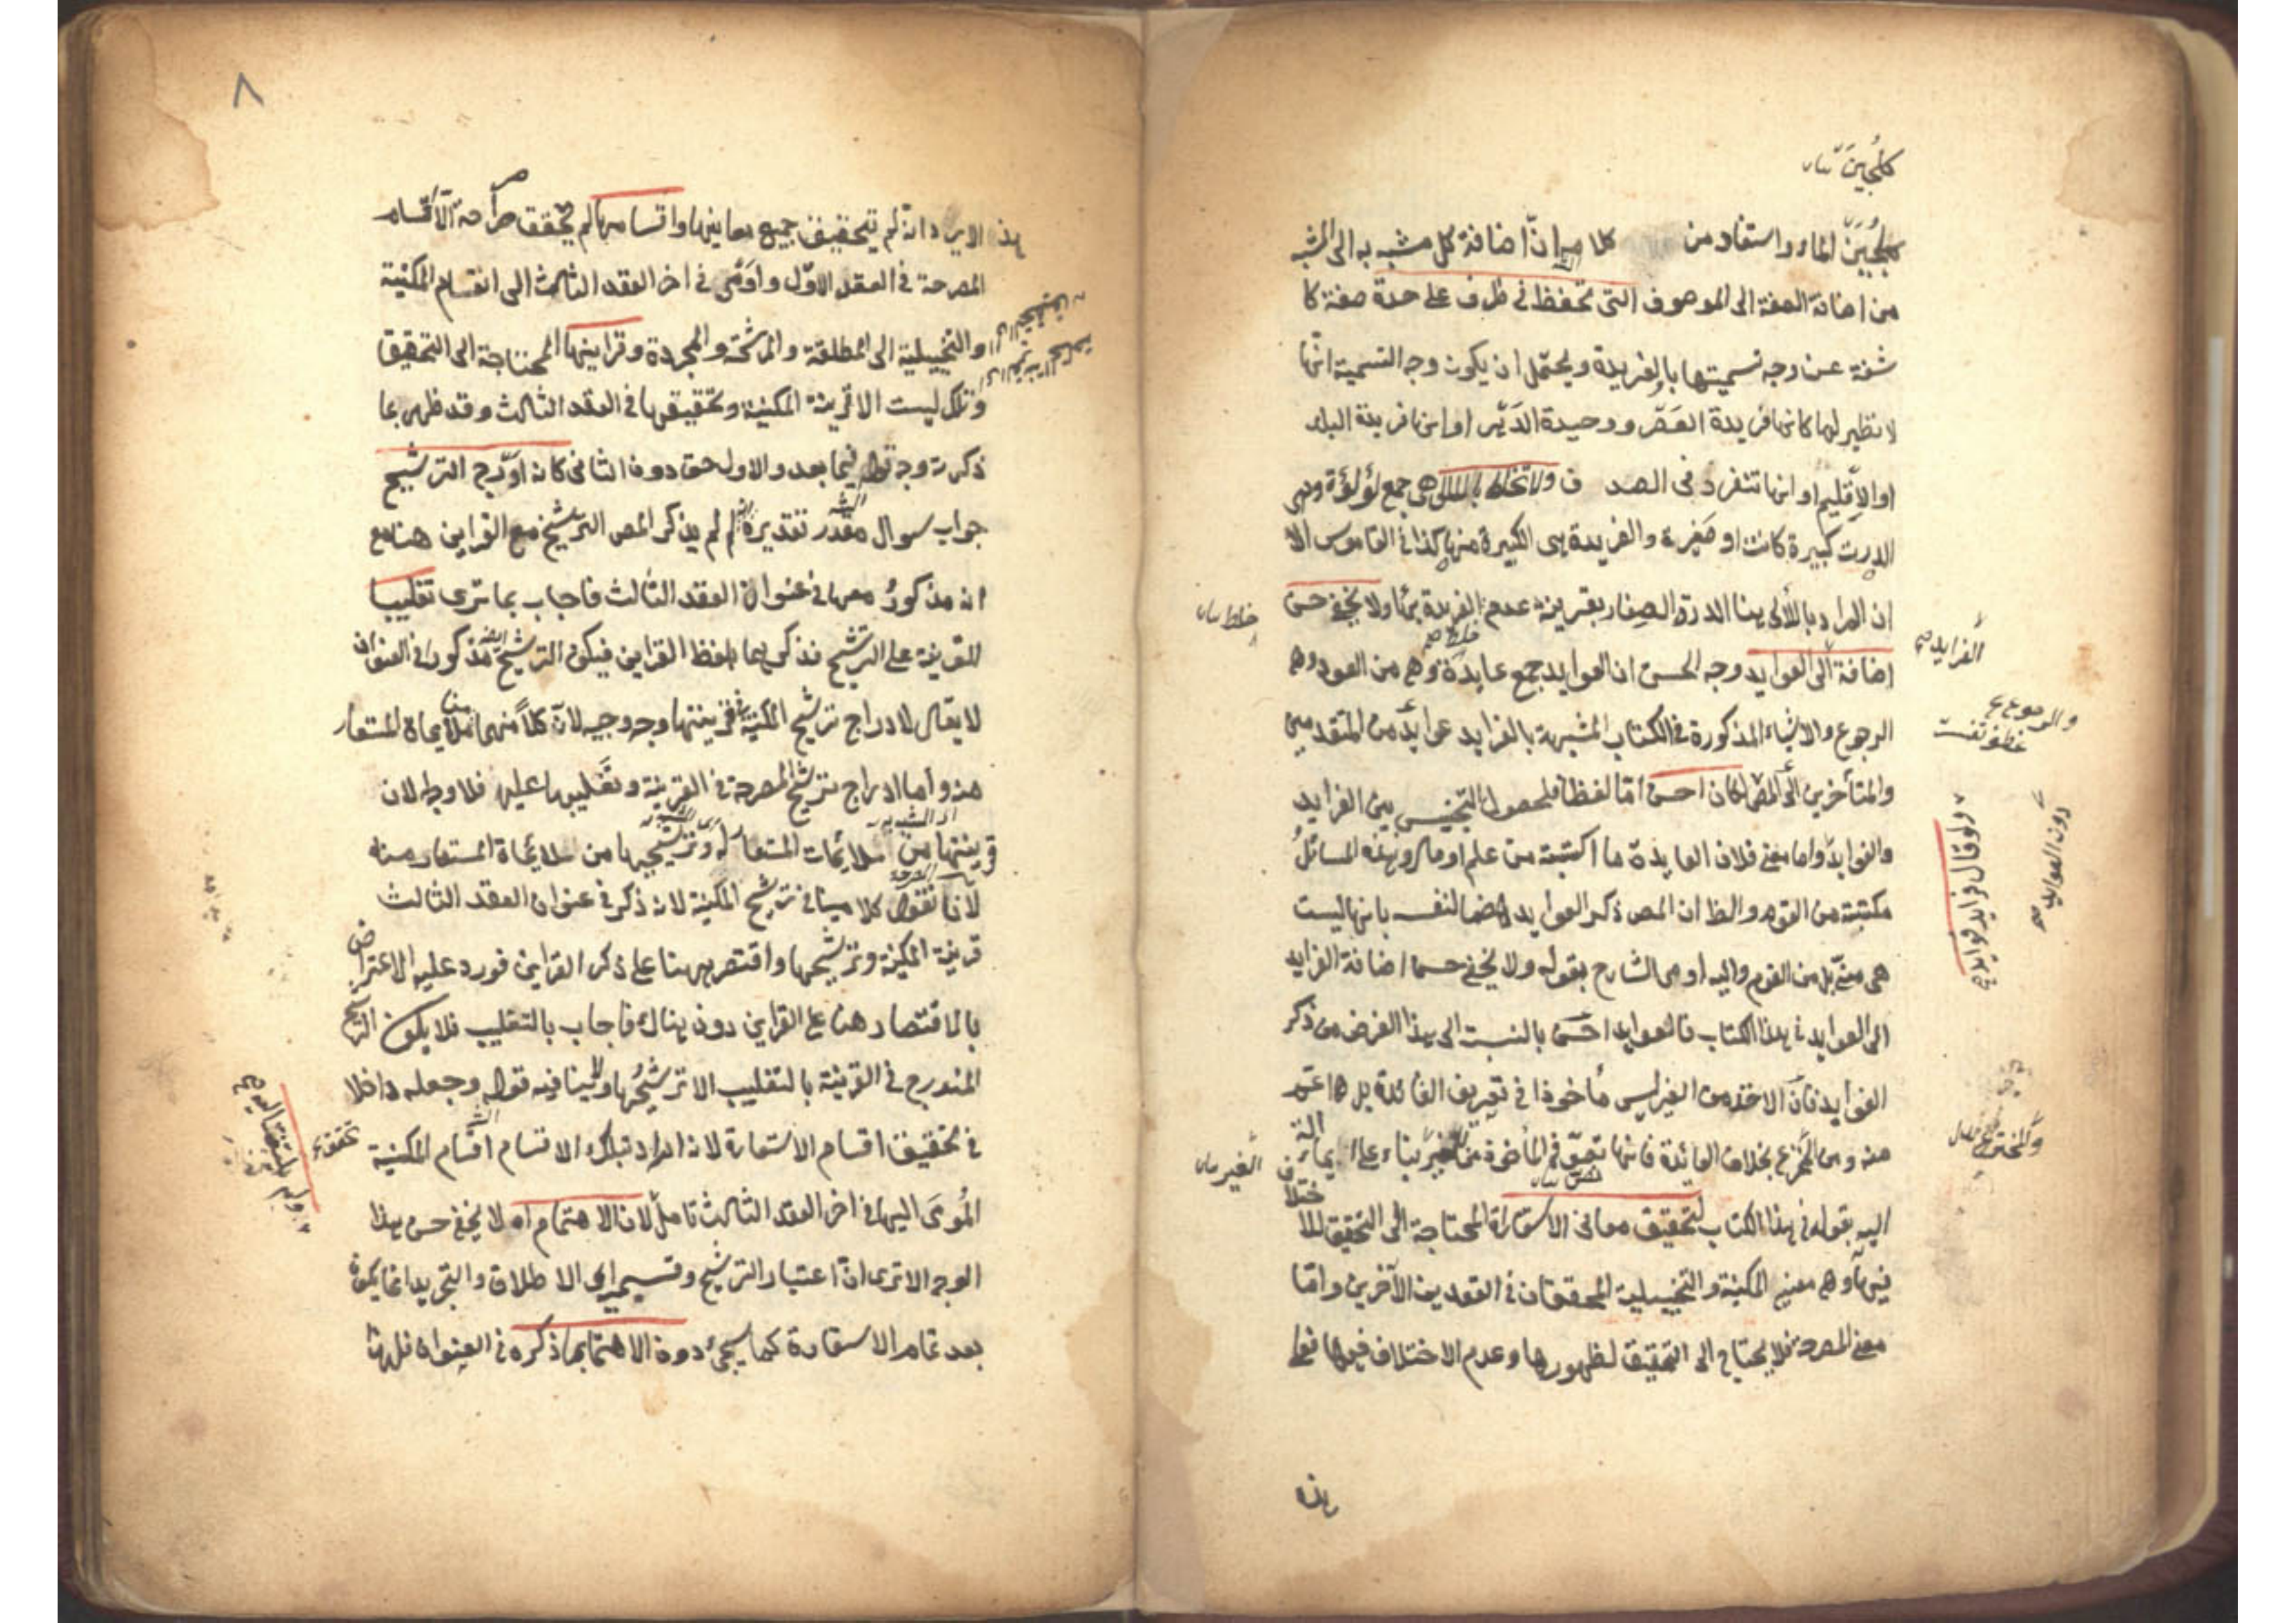 كلجين بيان
كلجين الماء واستفاد من كلامه ان اضافة كل مشبه به الى المشبه
من اضافة الصفة الى الموصوف التى تحفظ فى ظرف على حدة صفة كا
شفة عن وجه تسميتها بالفريدة ويحتمل ان يكون وجه التسمية انها
لا نظير لها كانها فريدة العصر ووحيدة الدهر او انها فريدة البلد
او الاقليم او انها تنفرد فى الصدف ولا تخلط باللآلى هى جمع لؤلؤة وهى
الدرت كبيرة كانت او صغيرة والفريدة هى الكبيرة منها كذا فى القاموس الا
ان المراد باللألى هنا الدرة الصغار بقرينة عدم الفريدة بها ولا يخفى حسن
خلط بيان
اضافة الى العوايد وجه الحسن ان العوايد جمع عايدة وهى من العود وهو
الفرايد صح
الرجوع والاشياء المذكورة فى الكتاب المشبهة بالفرايد عوايد من المتقدمين
والرجوع ع
والمتأخرين الى المص لكان احسن اما لفظا فلحصول التجنيس بين الفرايد
ولو قال فرايد فوايد
دون العوايد صح
والفوايد واما معنى فلان الفايدة ما اكتسبته من علم او مال وهذه المسائل
مكتسبة من القوم والظ ان المص ذكر العوايد هضما لنفسه بانها ليست
هى منه بل من القوم واليه اومى الشارح بقوله ولا يخفى حسن اضافة الفرايد
الى العوايد فى هذا الكتاب فالعوايد احسن بالنسبة الى هذا الغرض من ذكر
الفوايد فان الاخذ من الغير ليس مأخوذا فى تعريف الفائدة بل هو اعم
منه ومن المخترع بخلاف العائدة فانها تعم فى المأخوذة من الغير بناء على
والمخترع
الغير بيان
اليه بقوله فى هذا الكتاب لتحقيق معانى الاستعارة المحتاجة الى التحقيق للاختلاف
فيها وهو معنى المكنية والتخييلية المحققان فى العقدين الآخرين واما
معنى المصرحة فلا يحتاج الى التحقيق لظهورها وعدم الاختلاف فيها
هذا
٨
هذا الايراد انه لم يتحقيق جميع معانيها واقسامها لم يحقق صراحة الا اقسام
المصرحة فى العقد الاول واومى فى اخر العقد الثالث الى انقسام المكنية
والتخييلية الى المطلقة والمرشحة والمجردة وقراينها المحتاجة الى التحقيق
وتلك ليست الا قرينة المكنية وتحقيقها فى العقد الثالث وقد ظهر بما
ذكرت وجه قوله فيما بعد والاول حق دون الثانى كانه ادرج الترشيح
جواب سوال مقدر تقديره لم لم يذكر المص الترشيح مع القراين هنا مع
انه مذكور معها فى عنوان العقد الثالث فاجاب بما ترى تغليبا
للقرينة على الترشيح فذكرهما بلفظ القراين فيكون الترشيح ايضا مذكورا فى العنوان
لا يقال لادراج ترشيح المكنية فى قرينتها وجه وجيه لان كلا منهما من ملايماة المستعار
منه واما ادراج ترشيح المصرحة فى القرينة وتغليبها عليه فلا وجه له لان
قرينتها من ملايمات المستعار له وترشيحها من ملايماة المستعار منه
لانا نقول كلامنا فى ترشيح المكنية لانه ذكر فى عنوان العقد الثالث
قرينة المكنية وترشيحها واقتصر ههنا على ذكر القراين فورد عليه الاعتراض
بالاقتصار هنا على القراين دون هناك فاجاب بالتغليب فلا يكون الترشيح
المندرج فى القرينة بالتغليب الا ترشيحها ولا ينافيه قوله وجعله داخلا
فى تحقيق اقسام الاستعارة لان المراد بتلك الاقسام اقسام المكنية
المومى اليها فى اخر العقد الثالث تأمل لان الاهتمام اه لا يخفى حسن هذا
الوجه الا ترى ان اعتبار الترشيح وقسيميه اى الاطلاق والتجريد انما يكون
بعد تمام الاستعارة كما سيجئ دون الاهتمام بها ذكره فى العنوان فلهذا